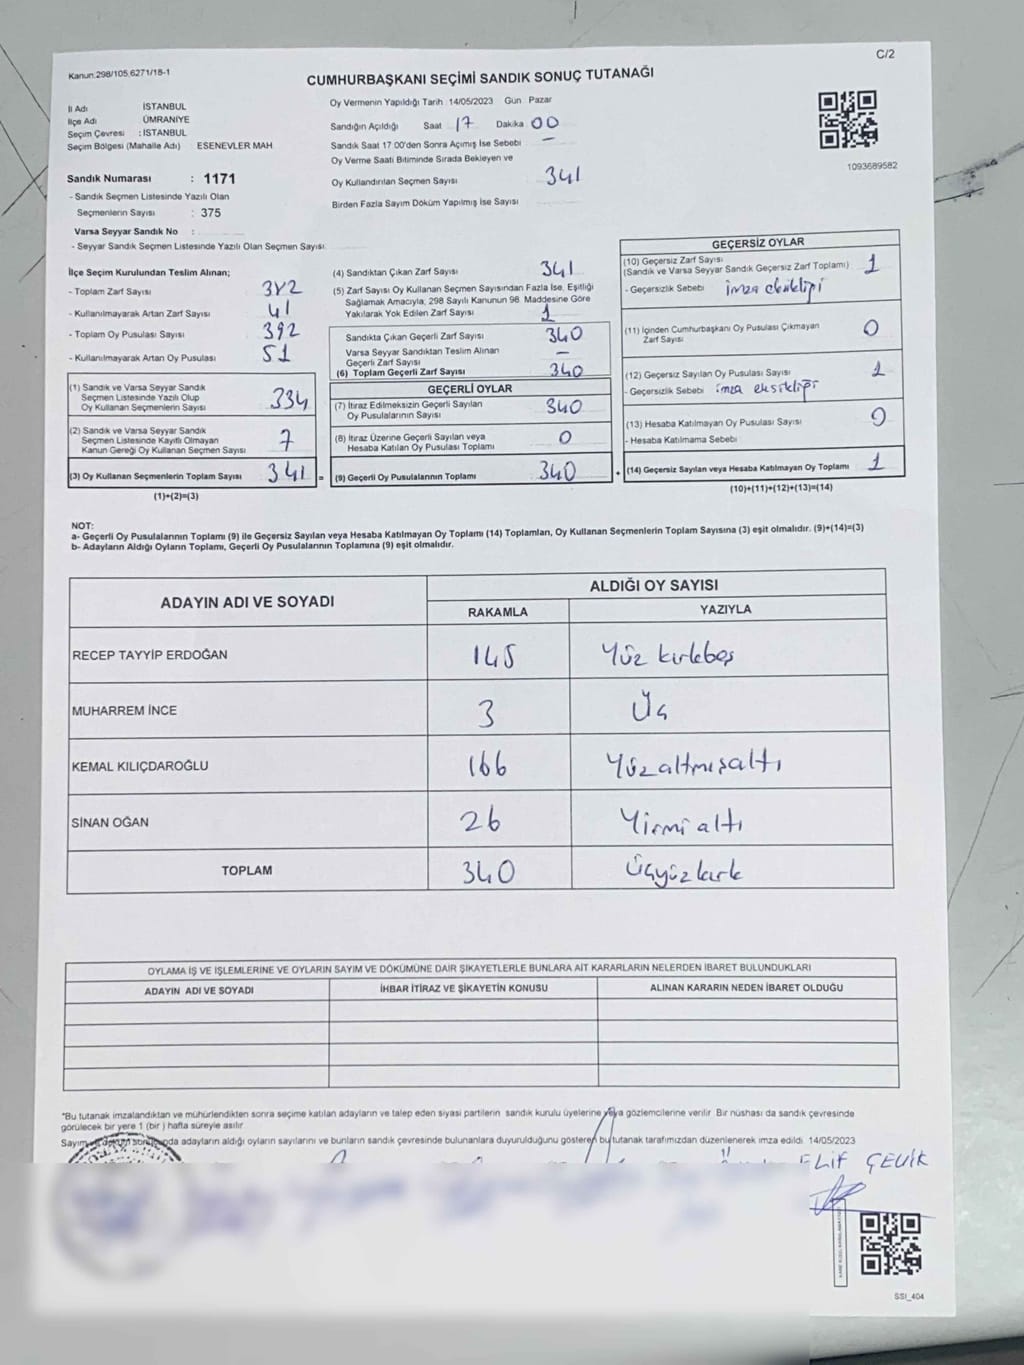 C/2
Kanun.298/105,6271/18-1
CUMHURBAŞKANI SEÇİMİ SANDIK SONUÇ TUTANAĞI
İl Adı İSTANBUL
İlçe Adı ÜMRANİYE
Seçim Çevresi : İSTANBUL
Seçim Bölgesi (Mahalle Adı) ESENEVLER MAH
Sandık Numarası : 1171
- Sandık Seçmen Listesinde Yazılı Olan
Seçmenlerin Sayısı : 375
Varsa Seyyar Sandık No :
- Seyyar Sandık Seçmen Listesinde Yazılı Olan Seçmen Sayısı
Oy Vermenin Yapıldığı Tarih 14/05/2023 Gün Pazar
Sandığın Açıldığı Saat 17 Dakika 00
Sandık Saat 17 00'den Sonra Açımış İse Sebebi –
Oy Verme Saati Bitiminde Sırada Bekleyen ve
Oy Kullandırılan Seçmen Sayısı 341
Birden Fazla Sayım Döküm Yapılmış İse Sayısı
1093689582
İlçe Seçim Kurulundan Teslim Alınan;
- Toplam Zarf Sayısı 382
- Kullanılmayarak Artan Zarf Sayısı 41
- Toplam Oy Pusulası Sayısı 392
- Kullanılmayarak Artan Oy Pusulası 51
(1) Sandık ve Varsa Seyyar Sandık
Seçmen Listesinde Yazılı Olup
Oy Kullanan Seçmenlerin Sayısı 334
(2) Sandık ve Varsa Seyyar Sandık
Seçmen Listesinde Kayıtlı Olmayan
Kanun Gereği Oy Kullanan Seçmen Sayısı 7
(3) Oy Kullanan Seçmenlerin Toplam Sayısı 341 =
(1)+(2)=(3)
(4) Sandıktan Çıkan Zarf Sayısı 341
(5) Zarf Sayısı Oy Kullanan Seçmen Sayısından Fazla İse, Eşitliği
Sağlamak Amacıyla, 298 Sayılı Kanunun 98. Maddesine Göre
Yakılarak Yok Edilen Zarf Sayısı 1
Sandıkta Çıkan Geçerli Zarf Sayısı 340
Varsa Seyyar Sandıktan Teslim Alınan
Geçerli Zarf Sayısı –
(6) Toplam Geçerli Zarf Sayısı 340
GEÇERLİ OYLAR
(7) İtiraz Edilmeksizin Geçerli Sayılan
Oy Pusulalarının Sayısı 340
(8) İtiraz Üzerine Geçerli Sayılan veya
Hesaba Katılan Oy Pusulası Toplamı 0
(9) Geçerli Oy Pusulalarının Toplamı 340 +
GEÇERSİZ OYLAR
(10) Geçersiz Zarf Sayısı
(Sandık ve Varsa Seyyar Sandık Geçersiz Zarf Toplamı) 1
- Geçersizlik Sebebi imza eksikliği
(11) İçinden Cumhurbaşkanı Oy Pusulası Çıkmayan
Zarf Sayısı 0
(12) Geçersiz Sayılan Oy Pusulası Sayısı 1
- Geçersizlik Sebebi imza eksikliği
(13) Hesaba Katılmayan Oy Pusulası Sayısı
- Hesaba Katılmama Sebebi
(14) Geçersiz Sayılan veya Hesaba Katılmayan Oy Toplamı 1
(10)+(11)+(12)+(13)=(14)
NOT:
a- Geçerli Oy Pusulalarının Toplamı (9) ile Geçersiz Sayılan veya Hesaba Katılmayan Oy Toplamı (14) Toplamları, Oy Kullanan Seçmenlerin Toplam Sayısına (3) eşit olmalıdır. (9)+(14)=(3)
b- Adayların Aldığı Oyların Toplamı, Geçerli Oy Pusulalarının Toplamına (9) eşit olmalıdır.
ADAYIN ADI VE SOYADI ALDIĞI OY SAYISI
RAKAMLA YAZIYLA
RECEP TAYYİP ERDOĞAN 145 Yüz kırkbeş
MUHARREM İNCE 3 Üç
KEMAL KILIÇDAROĞLU 166 Yüzaltmışaltı
SİNAN OĞAN 26 Yirmi altı
TOPLAM 340 Üçyüzkırk
OYLAMA İŞ VE İŞLEMLERİNE VE OYLARIN SAYIM VE DÖKÜMÜNE DAİR ŞİKAYETLERLE BUNLARA AİT KARARLARIN NELERDEN İBARET BULUNDUKLARI
ADAYIN ADI VE SOYADI İHBAR İTİRAZ VE ŞİKAYETİN KONUSU ALINAN KARARIN NEDEN İBARET OLDUĞU
*Bu tutanak imzalandıktan ve mühürlendikten sonra seçime katılan adayların ve talep eden siyasi partilerin sandık kurulu üyelerine veya gözlemcilerine verilir. Bir nüshası da sandık çevresinde
görülecek bir yere 1 (bir ) hafta süreyle asılır
adayların aldığı oyların sayılarını ve bunların sandık çevresinde bulunanlara duyurulduğunu gösteren bu tutanak tarafımızdan düzenlenerek imza edildi. 14/05/2023
ELİF ÇEVİK
SSI_404